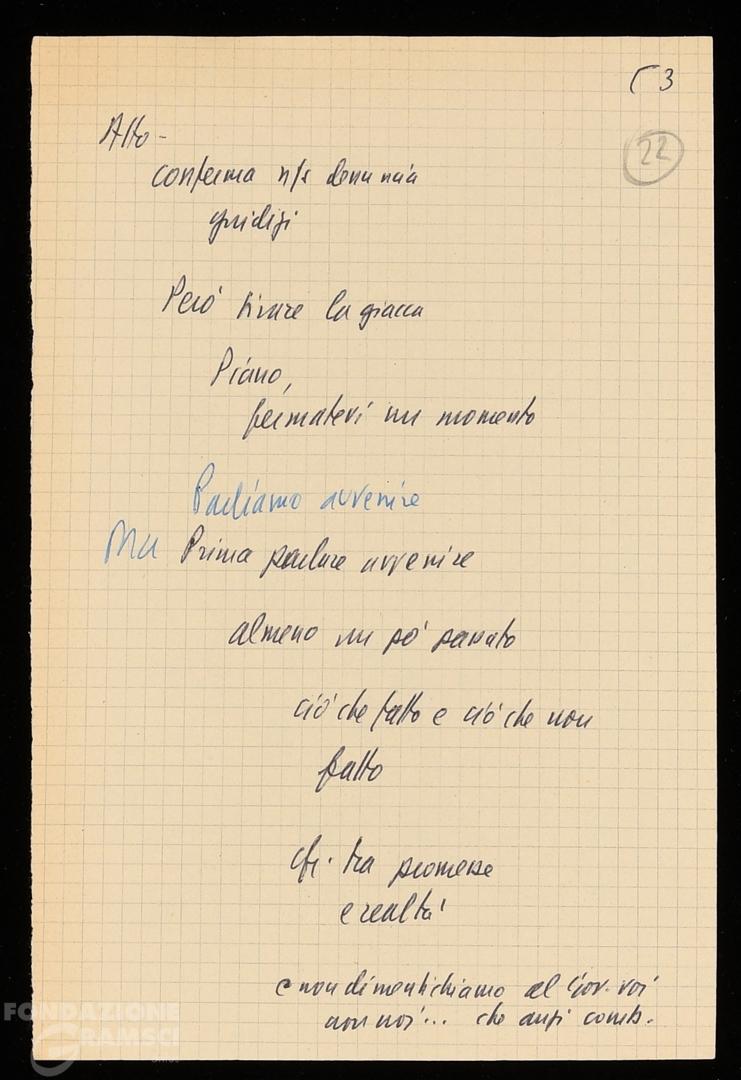 3
22
Alto -
conferma n/s denuncia
giudizi
Però tirare la giacca
Piano,
fermatevi un momento
Parliamo avvenire
Ma Prima parlare avvenire
almeno un pò passato
ciò che fatto e ciò che non
fatto
cfr. tra promesse
e realtà
e non dimentichiamo al Gov. voi
non noi... che anzi comb.
FONDAZIONE
GRAMSCI
ONLUS